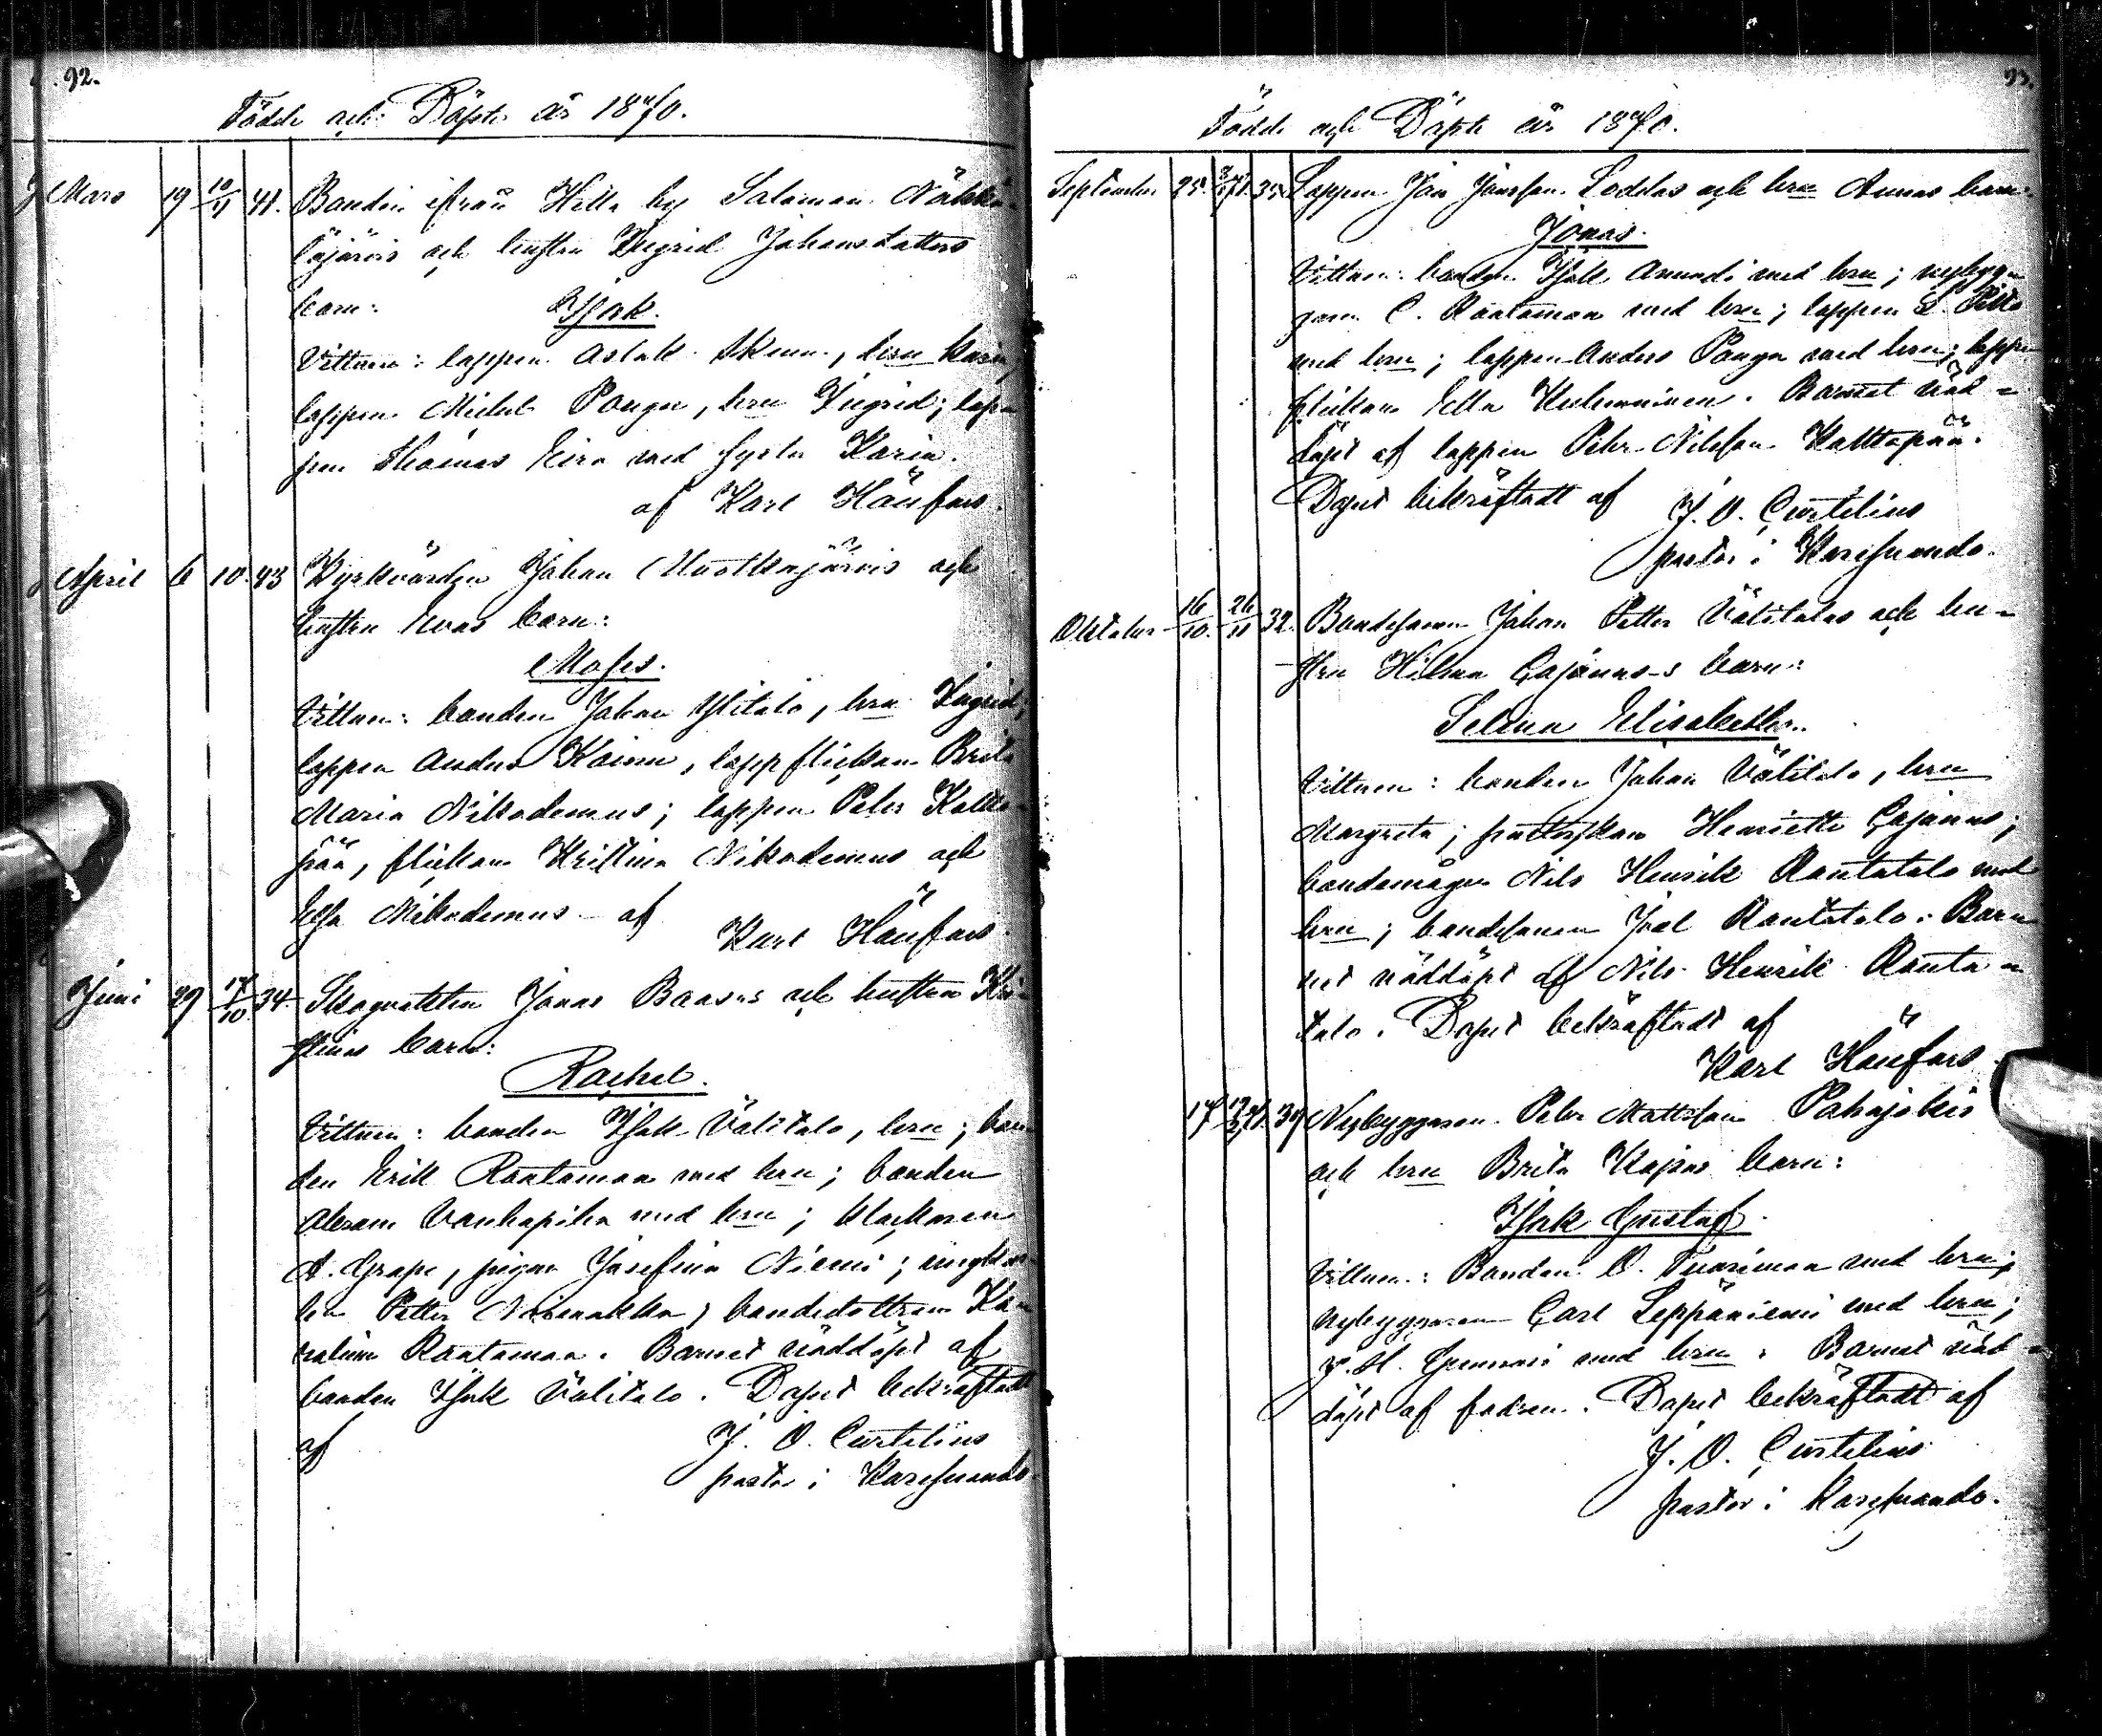 92.
Födde och Döpte år 1870.
Mars 19 10/4 41. Bonden ifrån Hetta by Salomon Näkkä-
läjärvis och hustru Ingrid Johansdotters
barn: Isak.
Vittnen: lappen Aslak Skum, hru Karin,
lappen Michel Ponga, hru Ingrid; lap-
pen Thomas Eira med syster Karin.
af Karl Hänfors.
April 6 10. 43 Kyrkvärden Johan Muotkajärvis och
hustru Evas barn:
Moses.
Vittnen: bonden Johan Ylitalo, hru Ingrid,
lappen Anders Kaine, lappflickan Brita
Maria Nikodemus; lappen Peter Kaltto-
pää, flickan Kristina Nikodemus och
Elsa Nikodemus af Karl Hänfors.
Juni 29 17/10 34 Skogvakten Jonas Baas-s och hustru Kri-
stinas barn:
Rachel.
Vittnen: bonden Isak Välitalo, hru; bon-
den Erik Rantamaa med hru; bonden
Abram Vanhapiha med hru; klockaren
A. Grape, pigan Josefina Niemi; ungkar-
len Petter Niemakka, bondedottren Ka-
rolina Rantamaa. Barnet nöddöpt af
bonden Isak Välitalo. Dopet bekräftadt
af J. O. Curtelius
pastor i Karesuando.
93.
Födde och Döpte år 1870.
September 25. 35. Lappen Jon Jonsson Loddas och hru Annas barn:
Jonas.
Vittnen: bonden Isak Anundi med hru; nybyg-
garn C. Rantamaa med hru; lappen
med hru; lappen Anders Ponga med hru; lapp
flickan Ella Keskominen. Barnet nöd-
döpt af lappen Peter Nilsson Kalttopää.
Dopet bekräftadt af J. O. Curtelius
pastor i Karesuando.
Oktober 16/10. 26/11 32. Bondesonen Johan Petter Välitalos och hu-
stru Hilma Cajanus-s barn:
Selma Elisabeth.
Vittnen: bonden Johan Välitalo, hru
Margreta; pastorskan Henriette Cajanus;
bondemågen Nils Henrik Rautatalo med
hru; bondesonen Joel Rautatalo. Bar-
net nöddöpt af Nils Henrik Rauta-
talo. Dopet bekräftadt af
Karl Hänfors.
17 39 Nybyggaren Peter Mattsson Pahajokis
och hru Brita Kajsas barn:
Isak Gustaf.
Vittnen: Bonden O. Tuorimaa med hru;
nybyggaren Carl Leppäniemi med hru;
med hru. Barnet nöd-
döpt af fadren. Dopet bekräftadt af
J. O. Curtelius
pastor i Karesuando.